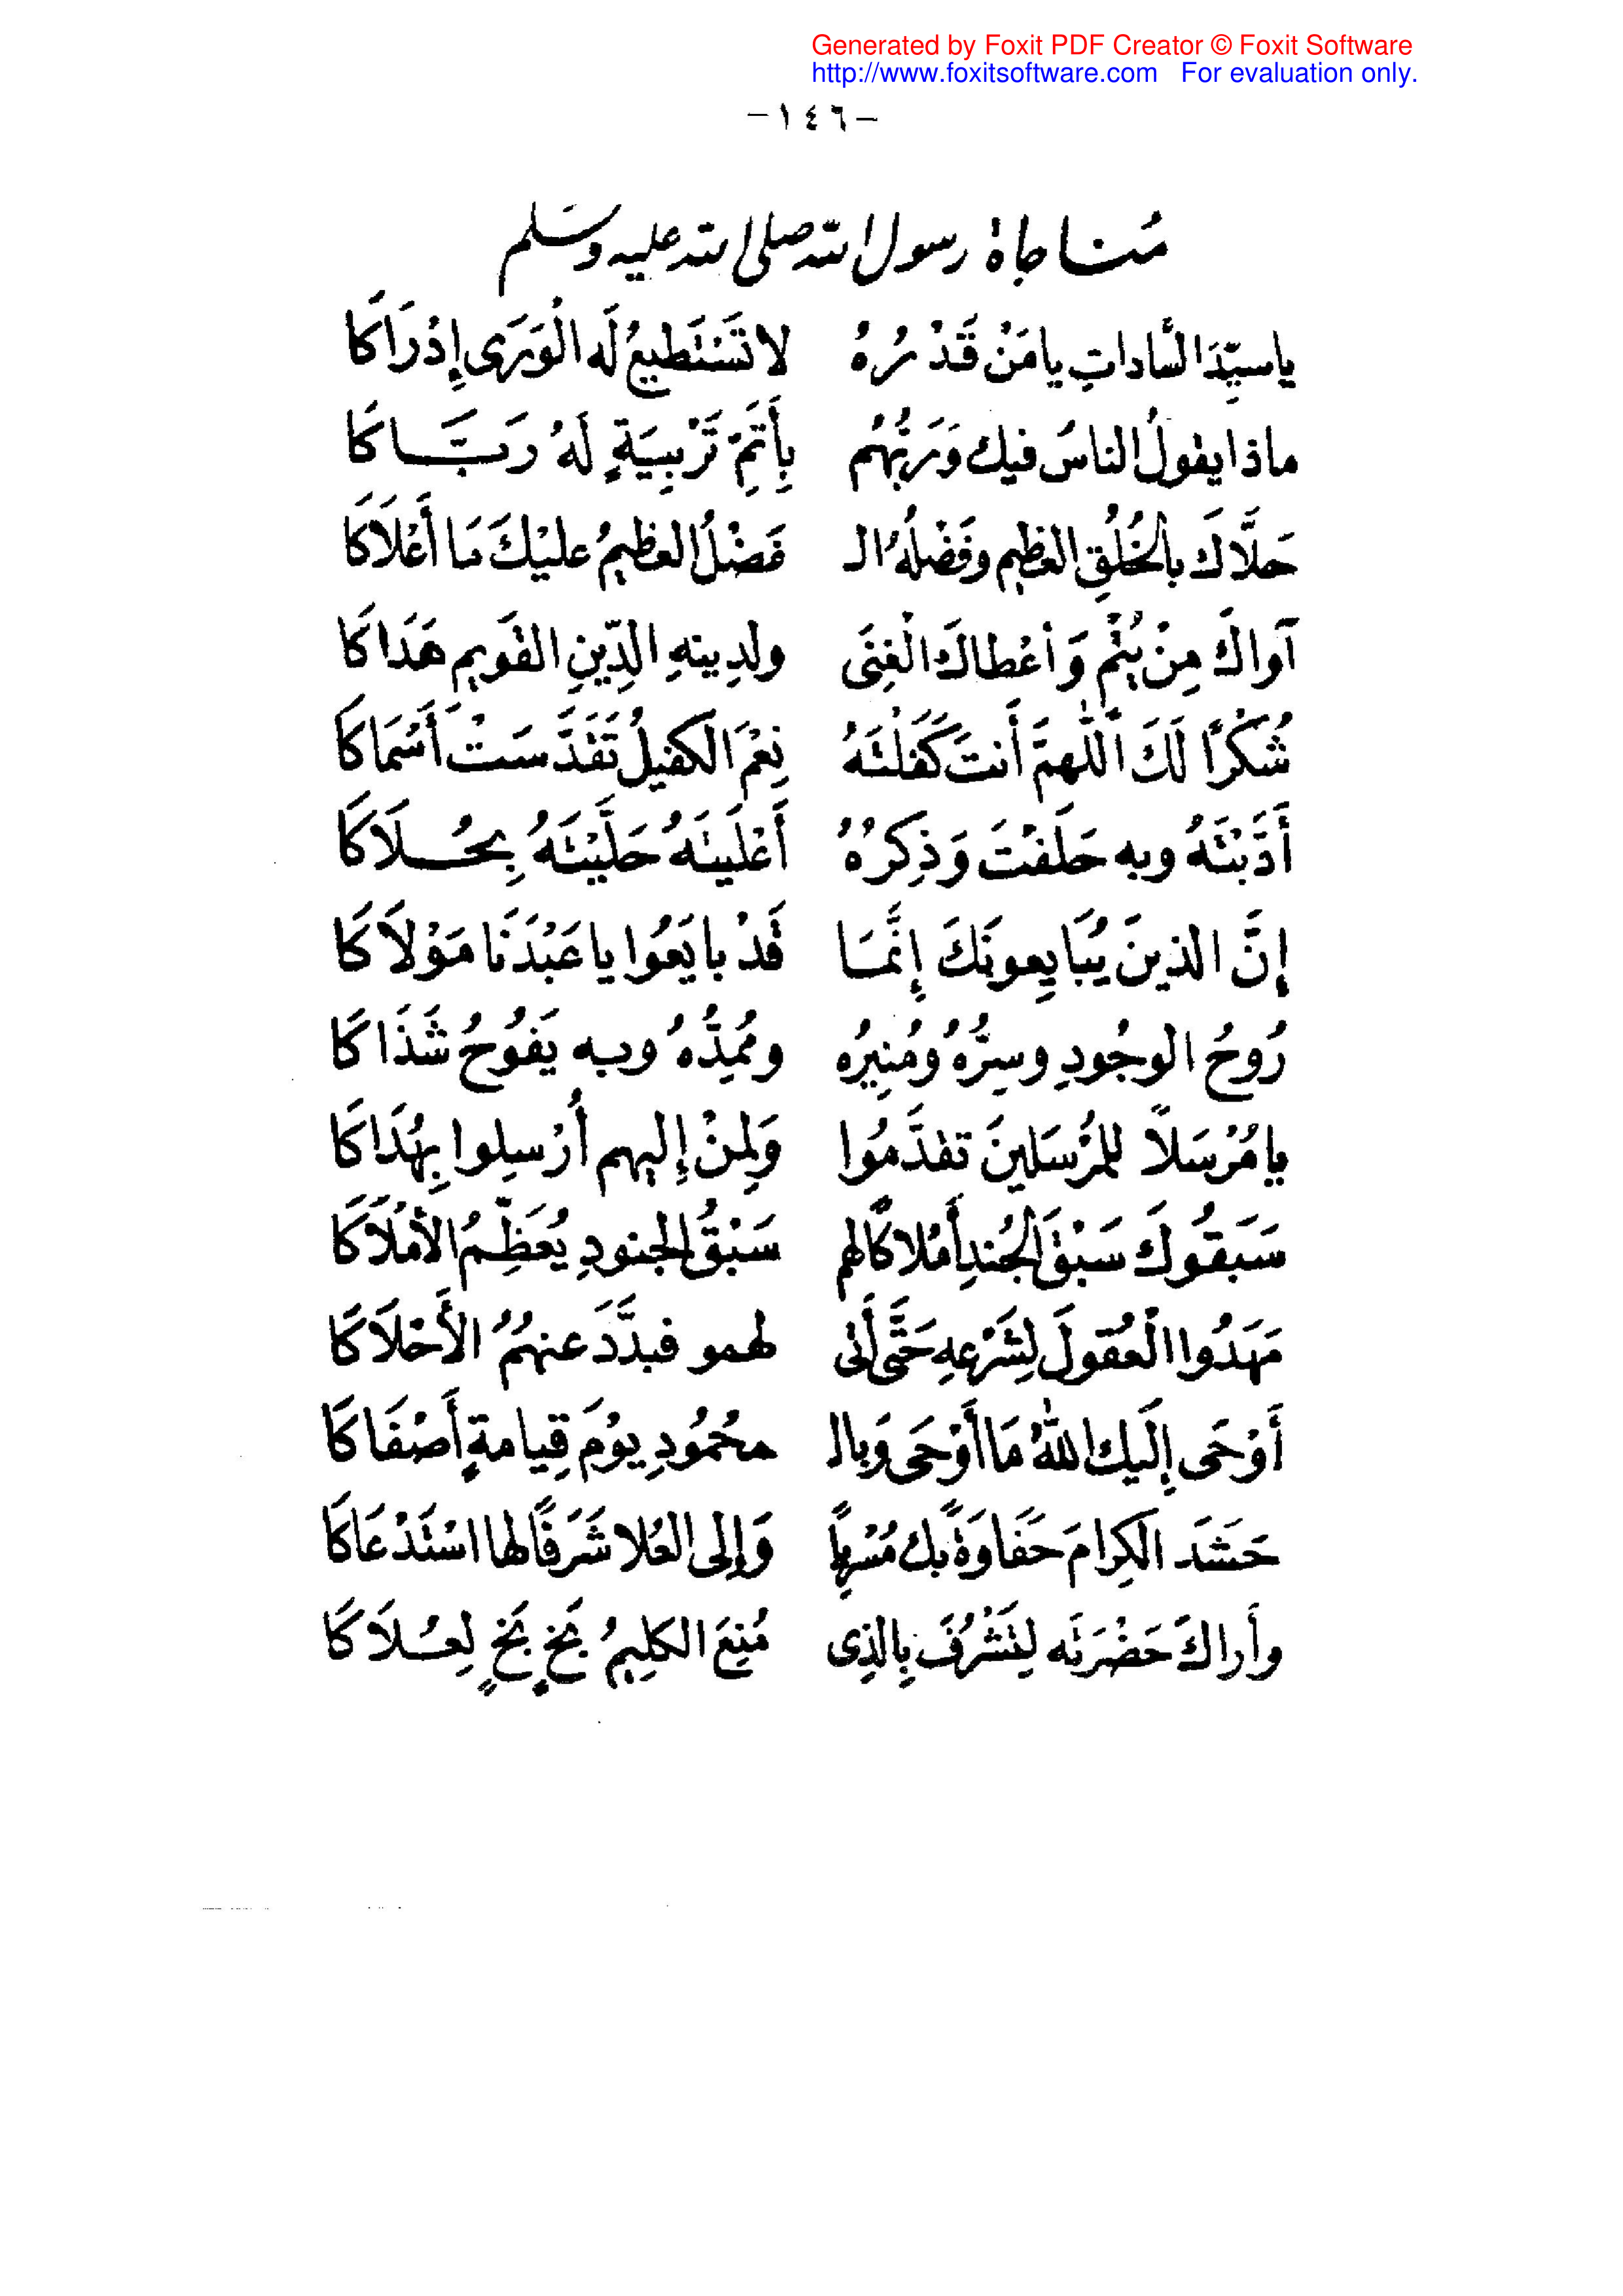 Generated by Foxit PDF Creator © Foxit Software
http://www.foxitsoftware.com For evaluation only.
-١٤٦-
مُناجاة رسول الله صلى الله عليه وسَلم
ياسيّدَ السَّاداتِ يامَنْ قَدْرُهُ لا تَسْتَطيعُ لَه الْوَرَى إِدْرَاكَا
ماذا يقولُ الناسُ فيك وَرَبُّهُم بِأَتَمِّ تَرْبِيَةٍ لَهُ رَبَّاكَا
حَلَّاكَ بالخُلُقِ العظيم وفَضْلُهُ الـ فَضْلُ العظيمُ عليْكَ مَا أَعْلَاكَا
آواكَ مِنْ يُتْمٍ وَأعْطاكَ الْغِنَى ولدِينهِ الدِّينِ القَويمِ هَدَاكَا
شُكْرًا لَكَ اللّٰهمَّ أَنتَ كَفَلْتَهُ نِعْمَ الكفيلُ تَقَدَّسَتْ أَسْمَاكَا
أَدَّبْتَهُ وبه حَلَفْتَ وَذِكرُهُ أَعْلَيتَهُ حَلَّيْتَهُ بِحُلَاكَا
إِنَّ الذينَ يُبَايِعونَكَ إِنَّمَا قَدْ بايَعُوا يا عَبْدَنَا مَوْلَاكَا
رُوحُ الوجُودِ وسِرُّهُ ومُنِيرُه ومُمِدُّهُ وبه يَفُوحُ شَذَاكَا
يا مُرْسَلاً للمُرْسَلينَ تقدَّمُوا وَلِمنْ إِليهم أُرْسِلوا بِهُدَاكَا
سَبَقُوكَ سَبْقَ الجُندِ أَمْلاكًا لهم سَبْقُ الجنودِ يُعَظِّمُ الأَمْلَاكَا
مَهَدُوا الْعُقولَ لِشَرْعِهِ حَتَّى أَتى لهمو فبدَّدَ عنهمُ الأَحْلَاكَا
أَوْحَى إِلَيك اللهُ مَا أَوْحَى وَبالـ محْمُودِ يوْمَ قِيامةٍ أَصْفَاكَا
حَشَدَ الكِرامَ حَفَاوَةً بك مُسْرِيًا وَإِلى العُلا شَرَفًا لها اسْتَدْعَاكَا
وأَراكَ حَضْرَتَه لِتَشْرُفَ بِالذِى مُنِعَ الكلِيمُ بَخٍ بَخٍ لِعُلَاكَا